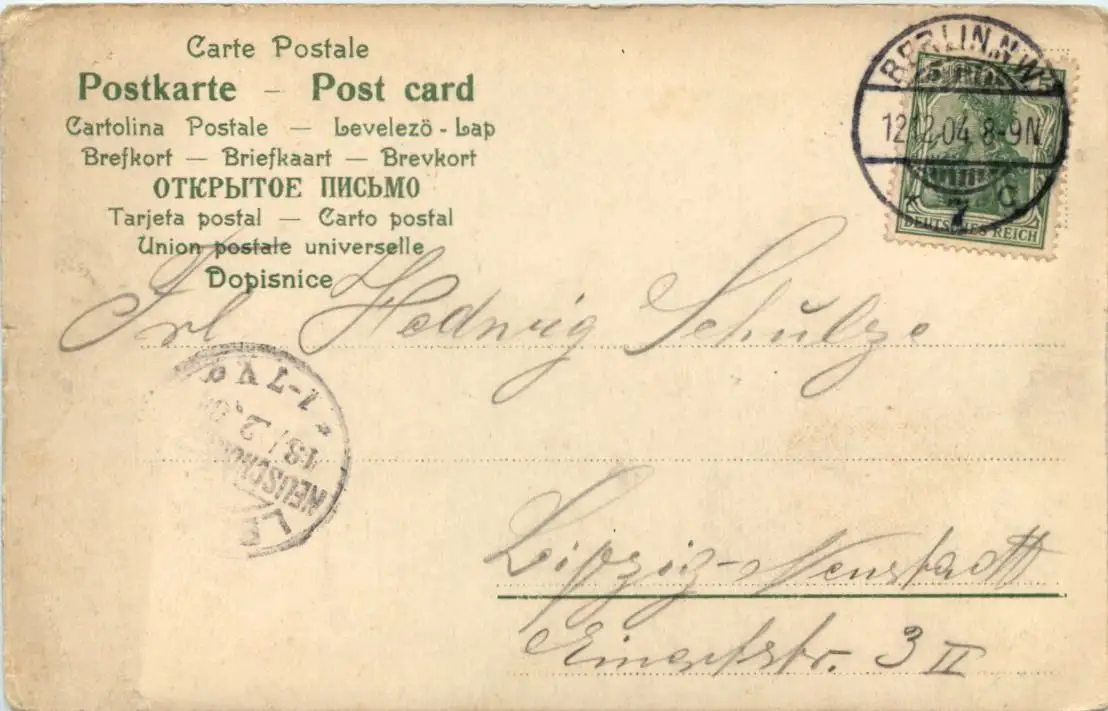 Carte Postale
Postkarte – Post card
Cartolina Postale — Levelezö - Lap
Brefkort — Briefkaart — Brevkort
ОТКРЫТОЕ ПИСЬМО
Tarjeta postal — Carto postal
Union postale universelle
Dopisnice
BERLIN.N.W.
12.12.04 8-9N
* 7 c
DEUTSCHES REICH
Frl Hedwig Schulze
Leipzig-Neustadt
3 II
* 1-7 V
13/12